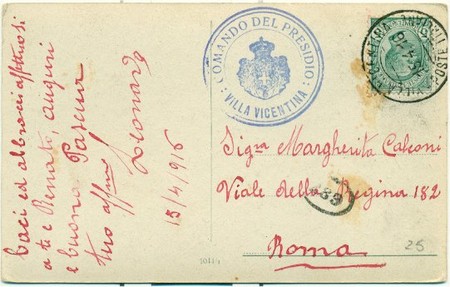 Baci ed abbracci affettuosi
a te e Renato, auguri
e buona Pasqua
tuo affmo
Leonardo
15/4/916
COMANDO DEL PRESIDIO
VILLA VICENTINA
POSTE ITALIANE
Sigra Margherita Calconi
Viale della Regina 182
Roma
25